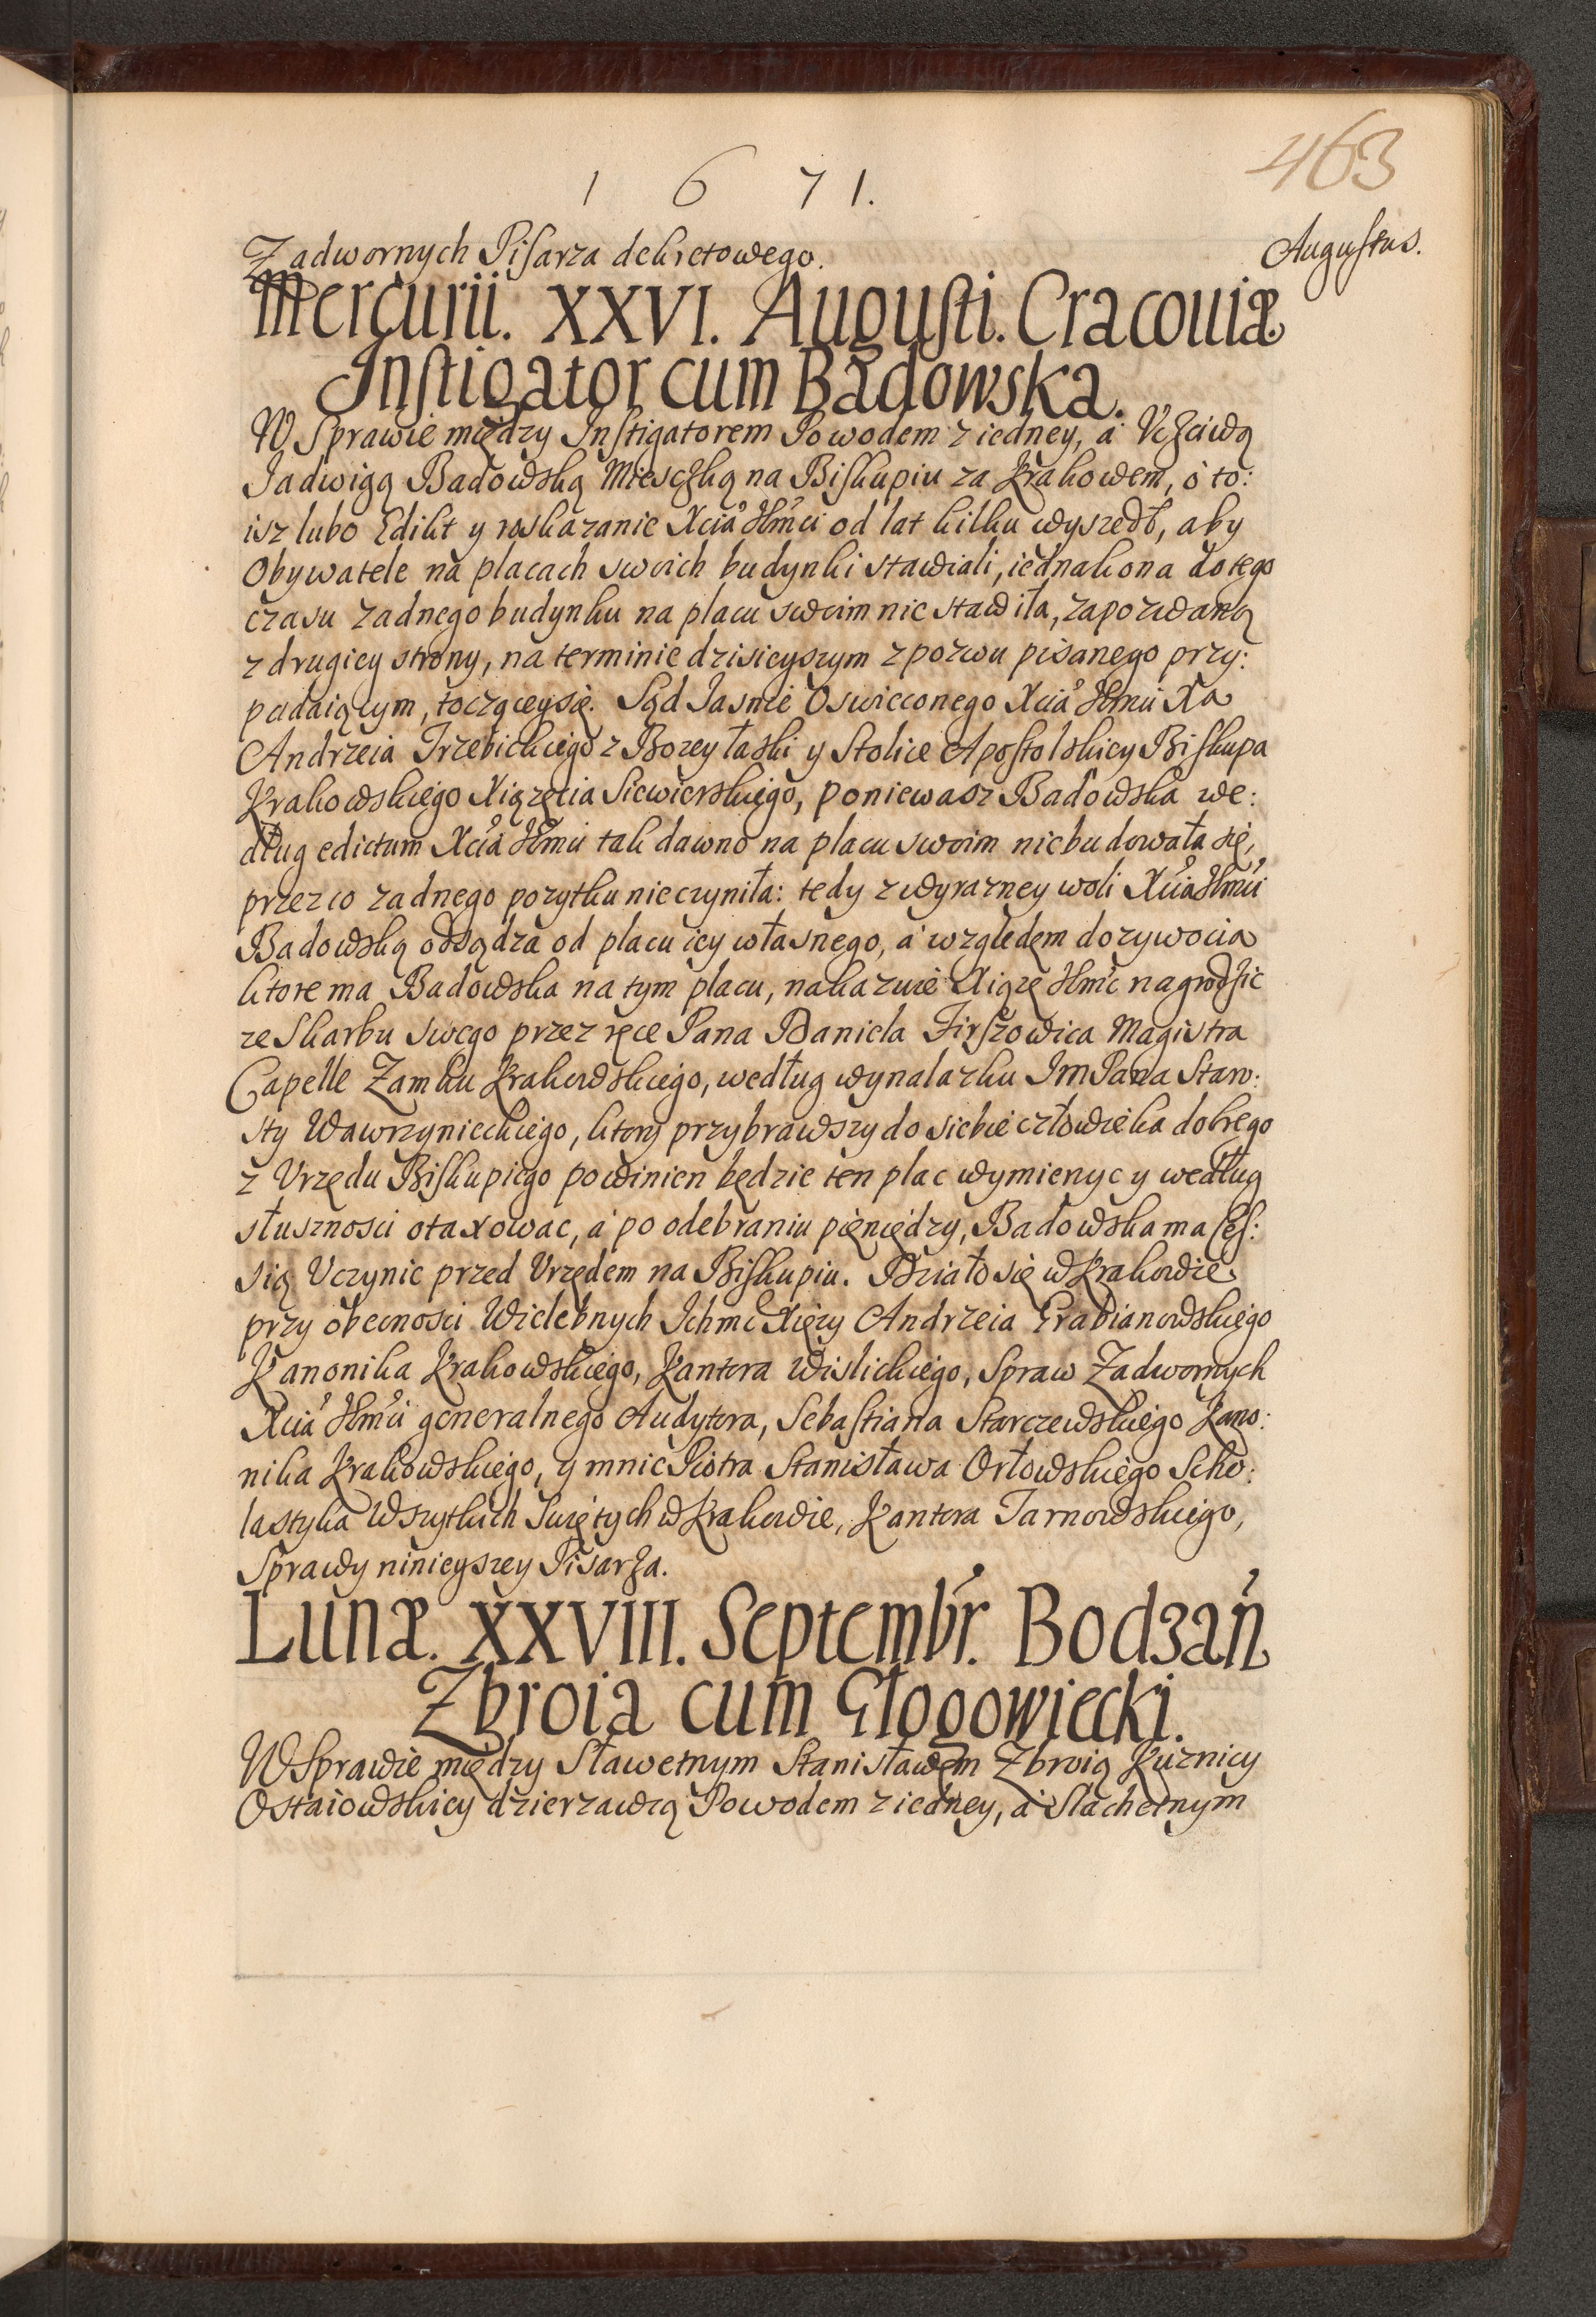 463
1 6 7 1.
Augustus.
Zadwornych Pisarza dekretowego.
Mercurii. XXVI. Augusti. Cracouiæ
Instigator cum Badowska.
W Sprawie między Instigatorem Powodem z iedney, á Vczciwą
Jadwigą Badowską Miesczką na Biskupiu za Krakowem, ó to:
isz lubo Edikt y roskazanie Xcia Jmci od lat kilku wyszedł, aby
Obywatele na placach swoich budynki stawiali, iednak ona do tego
czasu zadnego budynku na placu swoim nie stawiła, zapozwaną
z drugiey strony, na terminie dzisieyszym z pozwu pisanego przy:
padaiącym, toczącey się. Sąd Jasnie Oswieconego Xcia Jmci Xa
Andrzeia Trzebickiego z Bozey łaski y Stolice Apostolskiey Biskupa
Krakowskiego Xiązęcia Siewierskiego, poniewasz Badowska we:
dług edictum Xcia Jmci tak dawno na placu swoim nie budowała się,
przez co zadnego pozytku nie czyniła: tedy z wyrazney woli Xcia Jmci
Badowską odsądza od placu iey własnego, á względem dozywocia
ktore ma Badowska na tym placu, nakazuie Xiąze Jmc nagrodzic
ze Skarbu swego przez ręce Pana Daniela Firszowica Magistra
Capelle Zamku Krakowskiego, według wynalazku Jm Pana Staro:
sty Wawrzynieckiego, ktory przybrawszy do siebie człowieka dobrego
z Vrzędu Biskupiego powinien będzie ten plac wymienyc y według
słusznosci otaxowac, á po odebraniu pięniędzy, Badowska ma ses:
sią Vczynic przed Vrzędem na Biskupiu. Działo się w Krakowie
przy obecnosci Wielebnych Ichmc Xięzy Andrzeia Grabianowskiego
Kanonika Krakowskiego, Kantora Wislickiego, Spraw Zadwornych
Xcia Jmci generalnego Audytora, Sebastiana Starczewskiego Kano:
nika Krakowskiego, y mnie Piotra Stanisława Orłowskiego Scho:
lastyka Wszytkich Swiętych w Krakowie, Kantora Tarnowskiego,
Sprawy ninieyszey Pisarza.
Lunæ. XXVIII. Septembr. Bodzań
Zbroia cum Głogowiecki.
W Sprawie między Sławetnym Stanisławem Zbroią Kuznicy
Ostaiowskiey dzierzawcą Powodem z iedney, á Slachetnym